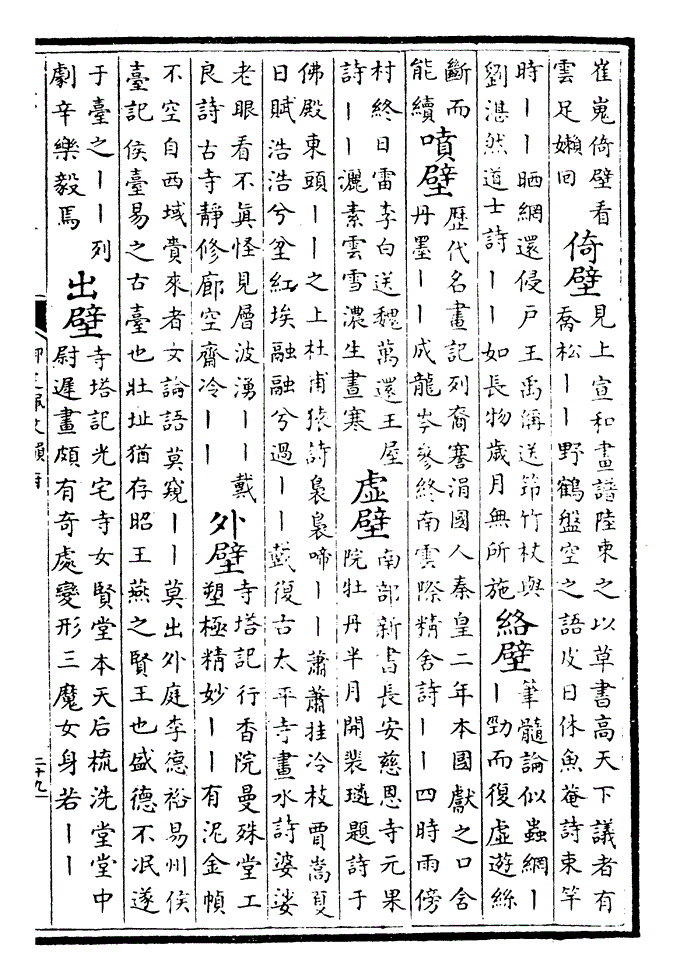 崔嵬倚壁看
雲足嬾回
倚壁
見上宣和畫譜陸柬之以草書高天下議者有
喬松丨丨野鶴盤空之語皮日休魚菴詩束竿
時丨丨晒網還侵戶王禹偁送筇竹杖與
劉湛然道士詩丨丨如長物歲月無所施
絡壁
筆髓論似蟲網丨
丨勁而復虛遊絲
斷而
能續
噴壁
歷代名畫記列裔謇涓國人秦皇二年本國獻之口含
丹墨丨丨成龍岑參終南雲際精舍詩丨丨四時雨傍
村終日雷李白送魏萬還王屋
詩丨丨灑素雲雪濃生晝寒
虛壁
南部新書長安慈恩寺元果
院牡丹半月開裴璘題詩于
佛殿東頭丨丨之上杜甫猿詩裊裊啼丨丨蕭蕭挂冷枝賈嵩夏
日賦浩浩兮坌紅埃融融兮過丨丨戴復古太平寺畫水詩婆娑
老眼看不眞怪見層波湧丨丨戴
良詩古寺靜修廊空齋冷丨丨
外壁
寺塔記行香院曼殊堂工
塑極精妙丨丨有泥金幀
不空自西域賫來者文論語莫窺丨丨莫出外庭李德裕易州侯
臺記侯臺易之古臺也壯址猶存昭王燕之賢王也盛德不泯遂
于臺之丨丨列
劇辛樂毅焉
出壁
寺塔記光宅寺女賢堂本天后梳洗堂堂中
尉遲畫頗有奇處變形三魔女身若丨丨